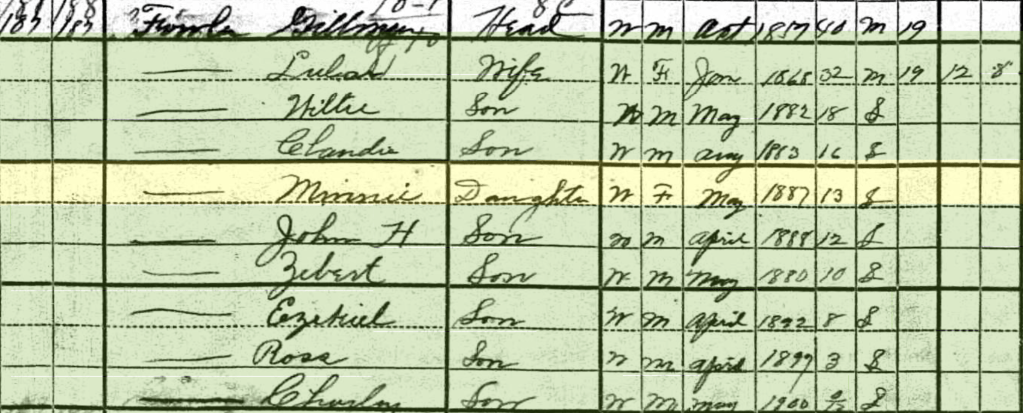 187 187 Fowler Head W M Oct 1857 40 M 19
Wife W F Jan 1868 32 M 19 12 8
Son W M May 1882 18 S
Claudie Son W M Aug 1883 16 S
Minnie Daughter W F May 1887 13 S
John H Son W M April 1888 12 S
Zebert Son W M May 1880 10 S
Ezekiel Son W M April 1892 8 S
Ross Son W M April 1897 3 S
Son W M May 1900 S